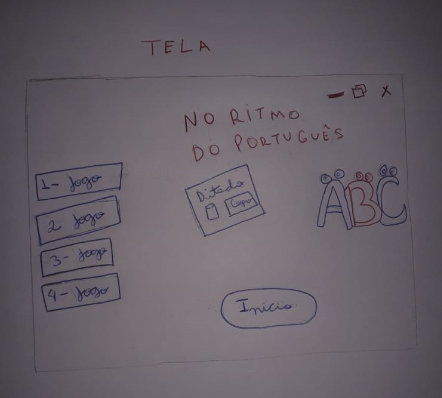 TELA
NO RITMO
DO PORTUGUÊS
X
1- Jogo
2 Jogo
3- Jogo
4- Jogo
Ditado
Copo
ABC
Início